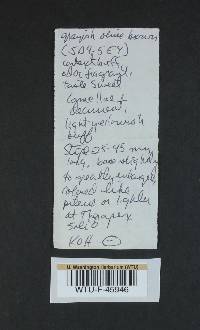 grayish olive brown
(5D4, 5E4)
context buff
odor fragrant,
taste sweet
Lamellae
decurrent,
light yellowish
buff
Stipe 25-45 mm
long, base slightly
to greatly enlarged
colored like
pileus or lighter
at the apex.
Solid
KOH ⊖
U. Washington Herbarium (WTU)
WTU-F-45946